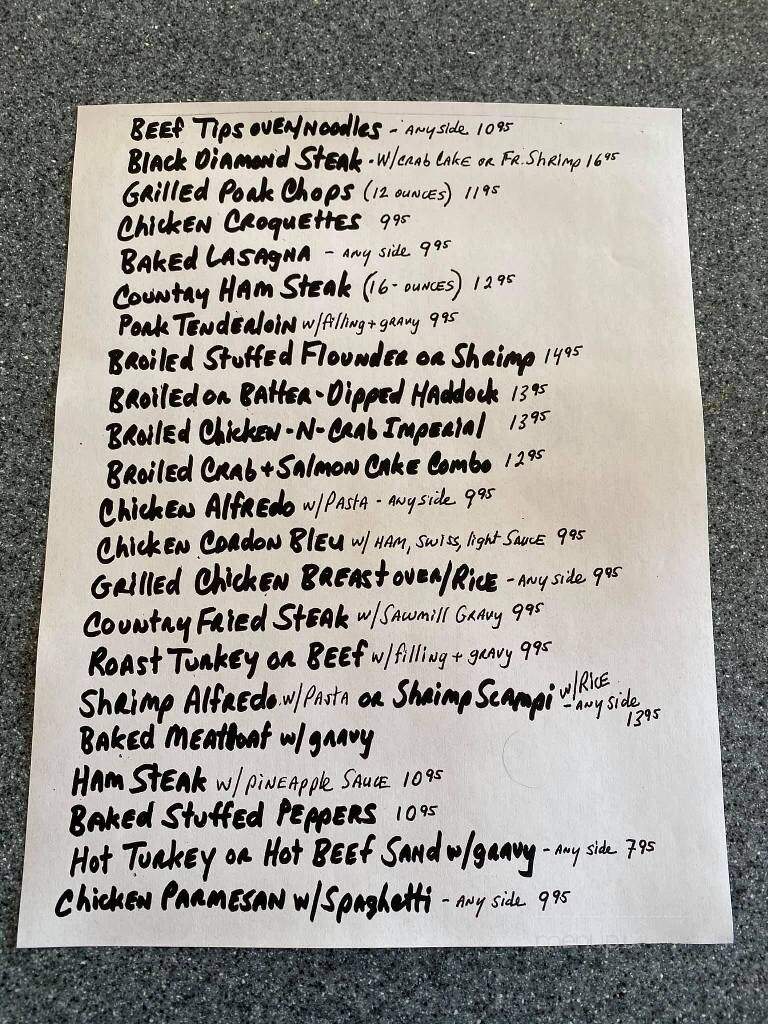 BEEF TIPS OVER/NOODLES - ANY SIDE 10 95
BLACK DIAMOND STEAK - W/CRAB CAKE OR FR. SHRIMP 16 95
GRILLED PORK CHOPS (12 OUNCES) 11 95
CHICKEN CROQUETTES 9 95
BAKED LASAGNA - ANY SIDE 9 95
COUNTRY HAM STEAK (16-OUNCES) 12 95
PORK TENDERLOIN W/filling + gravy 9 95
BROILED STUFFED FLOUNDER OR SHRIMP 14 95
BROILED OR BATTER-DIPPED HADDOCK 13 95
BROILED CHICKEN-N-CRAB IMPERIAL 13 95
BROILED CRAB + SALMON CAKE COMBO 12 95
CHICKEN ALFREDO W/PASTA - ANY SIDE 9 95
CHICKEN CORDON BLEU W/ HAM, SWISS, light SAUCE 9 95
GRILLED CHICKEN BREAST OVER/RICE - ANY SIDE 9 95
COUNTRY FRIED STEAK W/SAWMILL GRAVY 9 95
ROAST TURKEY OR BEEF W/filling + gravy 9 95
SHRIMP ALFREDO W/PASTA OR SHRIMP SCAMPI W/RICE - ANY SIDE 13 95
BAKED MEATLOAF W/gravy
HAM STEAK W/PINEAPPLE SAUCE 10 95
BAKED STUFFED PEPPERS 10 95
HOT TURKEY OR HOT BEEF SAND W/gravy - ANY SIDE 7 95
CHICKEN PARMESAN W/Spaghetti - ANY SIDE 9 95